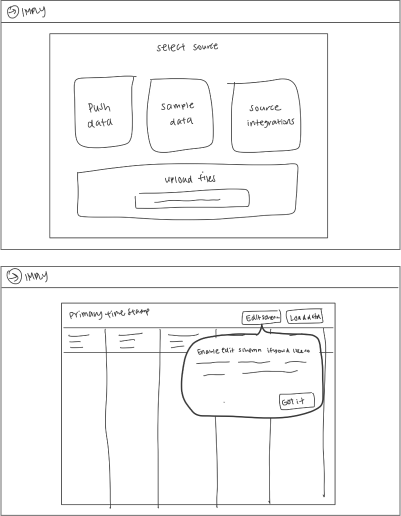 IMPLY
select source
Push data
sample data
source integrations
upload files
IMPLY
Primary time stamp
Edit schema
Load data
Enable edit schema if you'd like to
Got it